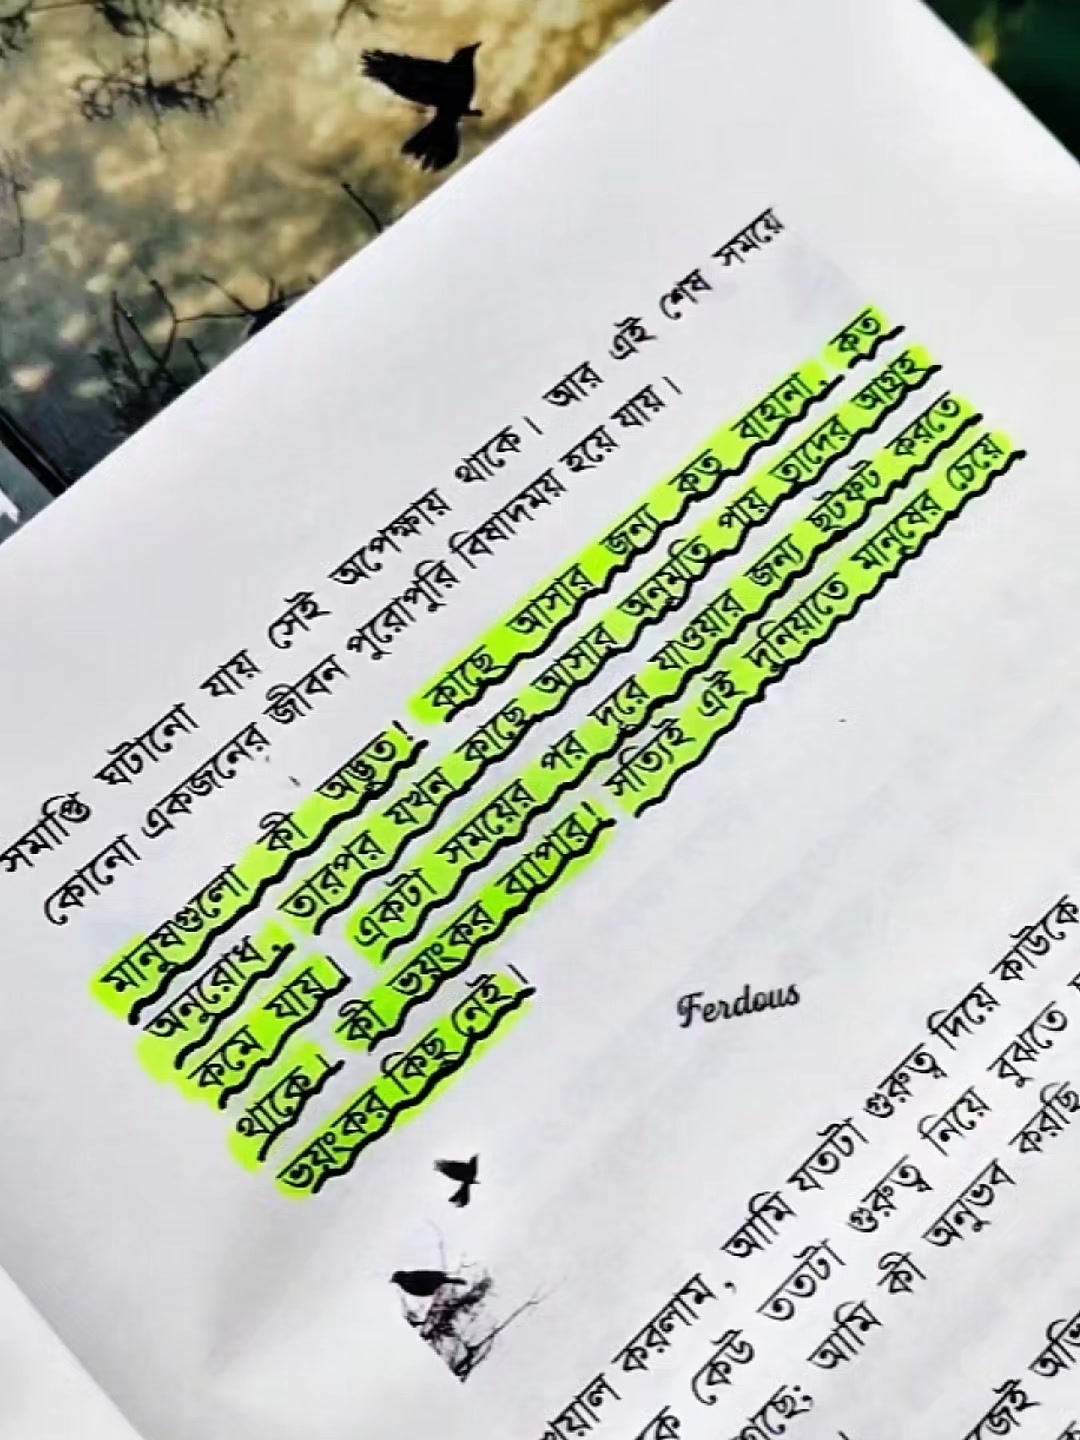 সমাপ্তি ঘটানো যায় সেই অপেক্ষায় থাকে। আর এই শেষ সময়ে
কোনো একজনের জীবন পুরোপুরি বিষাদময় হয়ে যায়।
মানুষগুলো কী অদ্ভুত! কাছে আসার জন্য কত বাহানা, কত
অনুরোধ, তারপর যখন কাছে আসার অনুমতি পায় তাদের আগ্রহ
কমে যায়। একটা সময়ের পর দূরে যাওয়ার জন্য ছটফট করতে
থাকে। কী ভয়ংকর ব্যাপার! সত্যিই এই দুনিয়াতে মানুষের চেয়ে
ভয়ংকর কিছু নেই।
Ferdous
করলাম, আমি যতটা গুরুত্ব দিয়ে কাউকে
কেউ ততটা গুরুত্ব নিয়ে বুঝতে
আমি কী অনুভব করছি